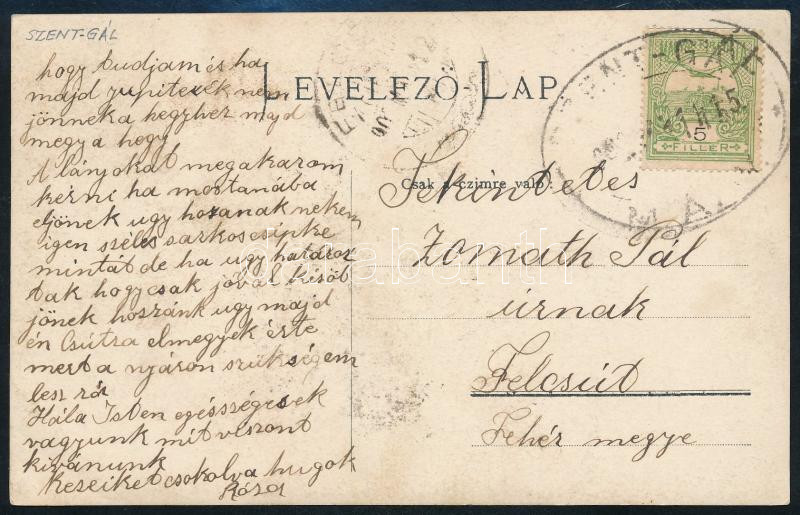 SZENT-GÁL
hogy tudjam és ha
majd
jönnek a hegyhez majd
megy a hogy
A lányokat megakarom
kérni ha mostanába
eljönek ugy hozanak nekem
igen széles sarkos csipke
mintát de ha ugy határoz
tak hogy csak jóval késöb
jönek hoszánk ugy majd
én Csútra elmegyek érte
mert a nyáron szükségem
lesz rá
Hála Isten egésségesek
vagyunk mit viszont
kivánunk
kezeiket csokolva hugok
Róza
LEVELEZŐ LAP
Csak a czimre való:
SZENT-GÁL
5
FILLER
Tekintetes
Zomath Pál
úrnak
Felcsút
Fehér megye
darabanth